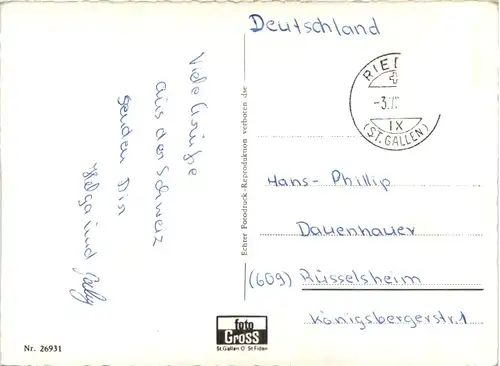 Deutschland
Viele Grüße
aus der Schweiz
senden Dir
Helga und
RIE
-3.
IX
(ST. GALLEN)
Hans-Phillip
Dauenhauer
(609) Rüsselsheim
Königsbergerstr. 1
Echter Fotodruck-Reproduktion verboten dse
foto
Gross
St.Gallen O St.Fiden
Nr. 26931